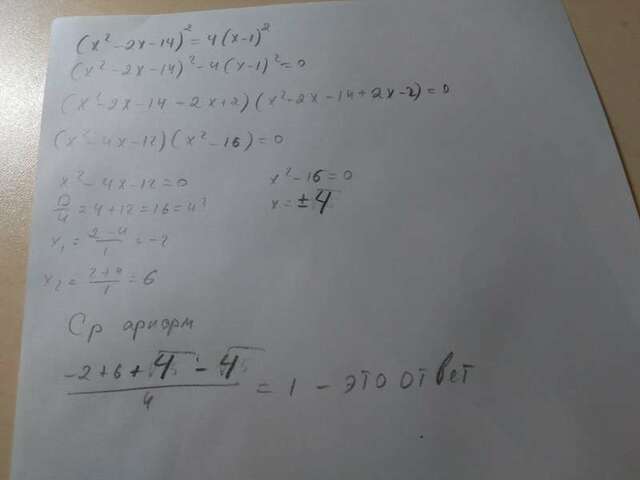 (x² - 2x - 14)² = 4(x-1)²
(x² - 2x - 14)² - 4(x-1)² = 0
(x² - 2x - 14 - 2x + 2)(x² - 2x - 14 + 2x - 2) = 0
(x² - 4x - 12)(x² - 16) = 0
x² - 4x - 12 = 0
D/4 = 4 + 12 = 16 = 4²
x₁ = (2-4)/1 = -2
x₂ = (2+4)/1 = 6
x² - 16 = 0
x = ±4
Ср арифм
(-2 + 6 + 4 - 4)/4 = 1 - это ответ